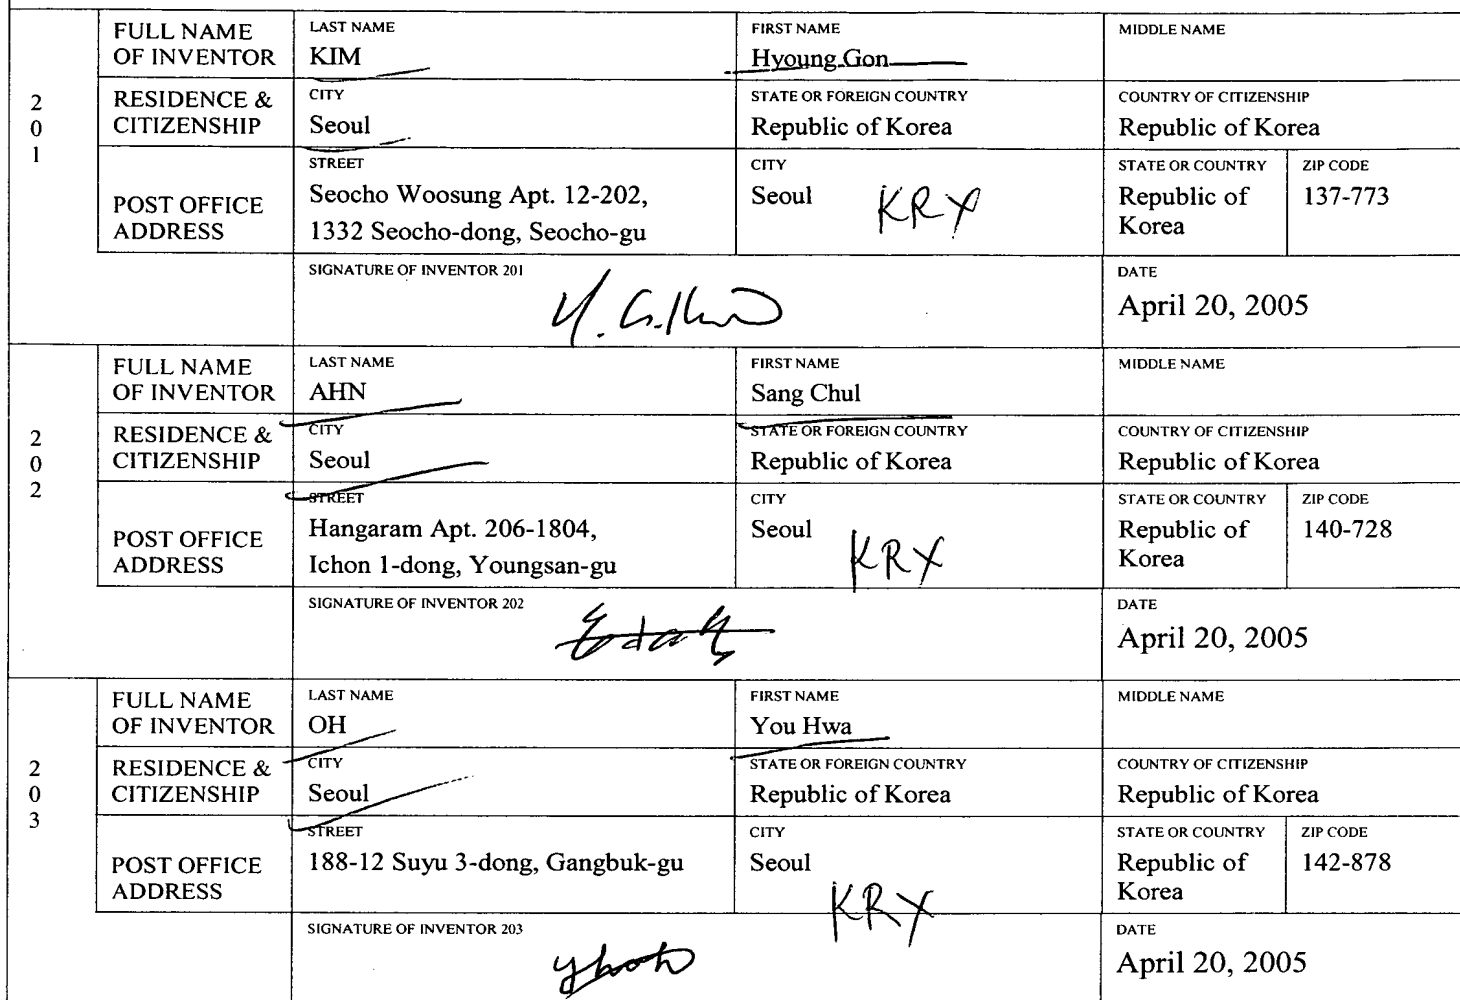 201
FULL NAME OF INVENTOR
LAST NAME
KIM
FIRST NAME
Hyoung Gon
MIDDLE NAME
RESIDENCE & CITIZENSHIP
CITY
Seoul
STATE OR FOREIGN COUNTRY
Republic of Korea
COUNTRY OF CITIZENSHIP
Republic of Korea
POST OFFICE ADDRESS
STREET
Seocho Woosung Apt. 12-202,
1332 Seocho-dong, Seocho-gu
CITY
Seoul KRX
STATE OR COUNTRY
Republic of
Korea
ZIP CODE
137-773
SIGNATURE OF INVENTOR 201
DATE
April 20, 2005
202
FULL NAME OF INVENTOR
LAST NAME
AHN
FIRST NAME
Sang Chul
MIDDLE NAME
RESIDENCE & CITIZENSHIP
CITY
Seoul
STATE OR FOREIGN COUNTRY
Republic of Korea
COUNTRY OF CITIZENSHIP
Republic of Korea
POST OFFICE ADDRESS
STREET
Hangaram Apt. 206-1804,
Ichon 1-dong, Youngsan-gu
CITY
Seoul KRX
STATE OR COUNTRY
Republic of
Korea
ZIP CODE
140-728
SIGNATURE OF INVENTOR 202
DATE
April 20, 2005
203
FULL NAME OF INVENTOR
LAST NAME
OH
FIRST NAME
You Hwa
MIDDLE NAME
RESIDENCE & CITIZENSHIP
CITY
Seoul
STATE OR FOREIGN COUNTRY
Republic of Korea
COUNTRY OF CITIZENSHIP
Republic of Korea
POST OFFICE ADDRESS
STREET
188-12 Suyu 3-dong, Gangbuk-gu
CITY
Seoul KRX
STATE OR COUNTRY
Republic of
Korea
ZIP CODE
142-878
SIGNATURE OF INVENTOR 203
DATE
April 20, 2005